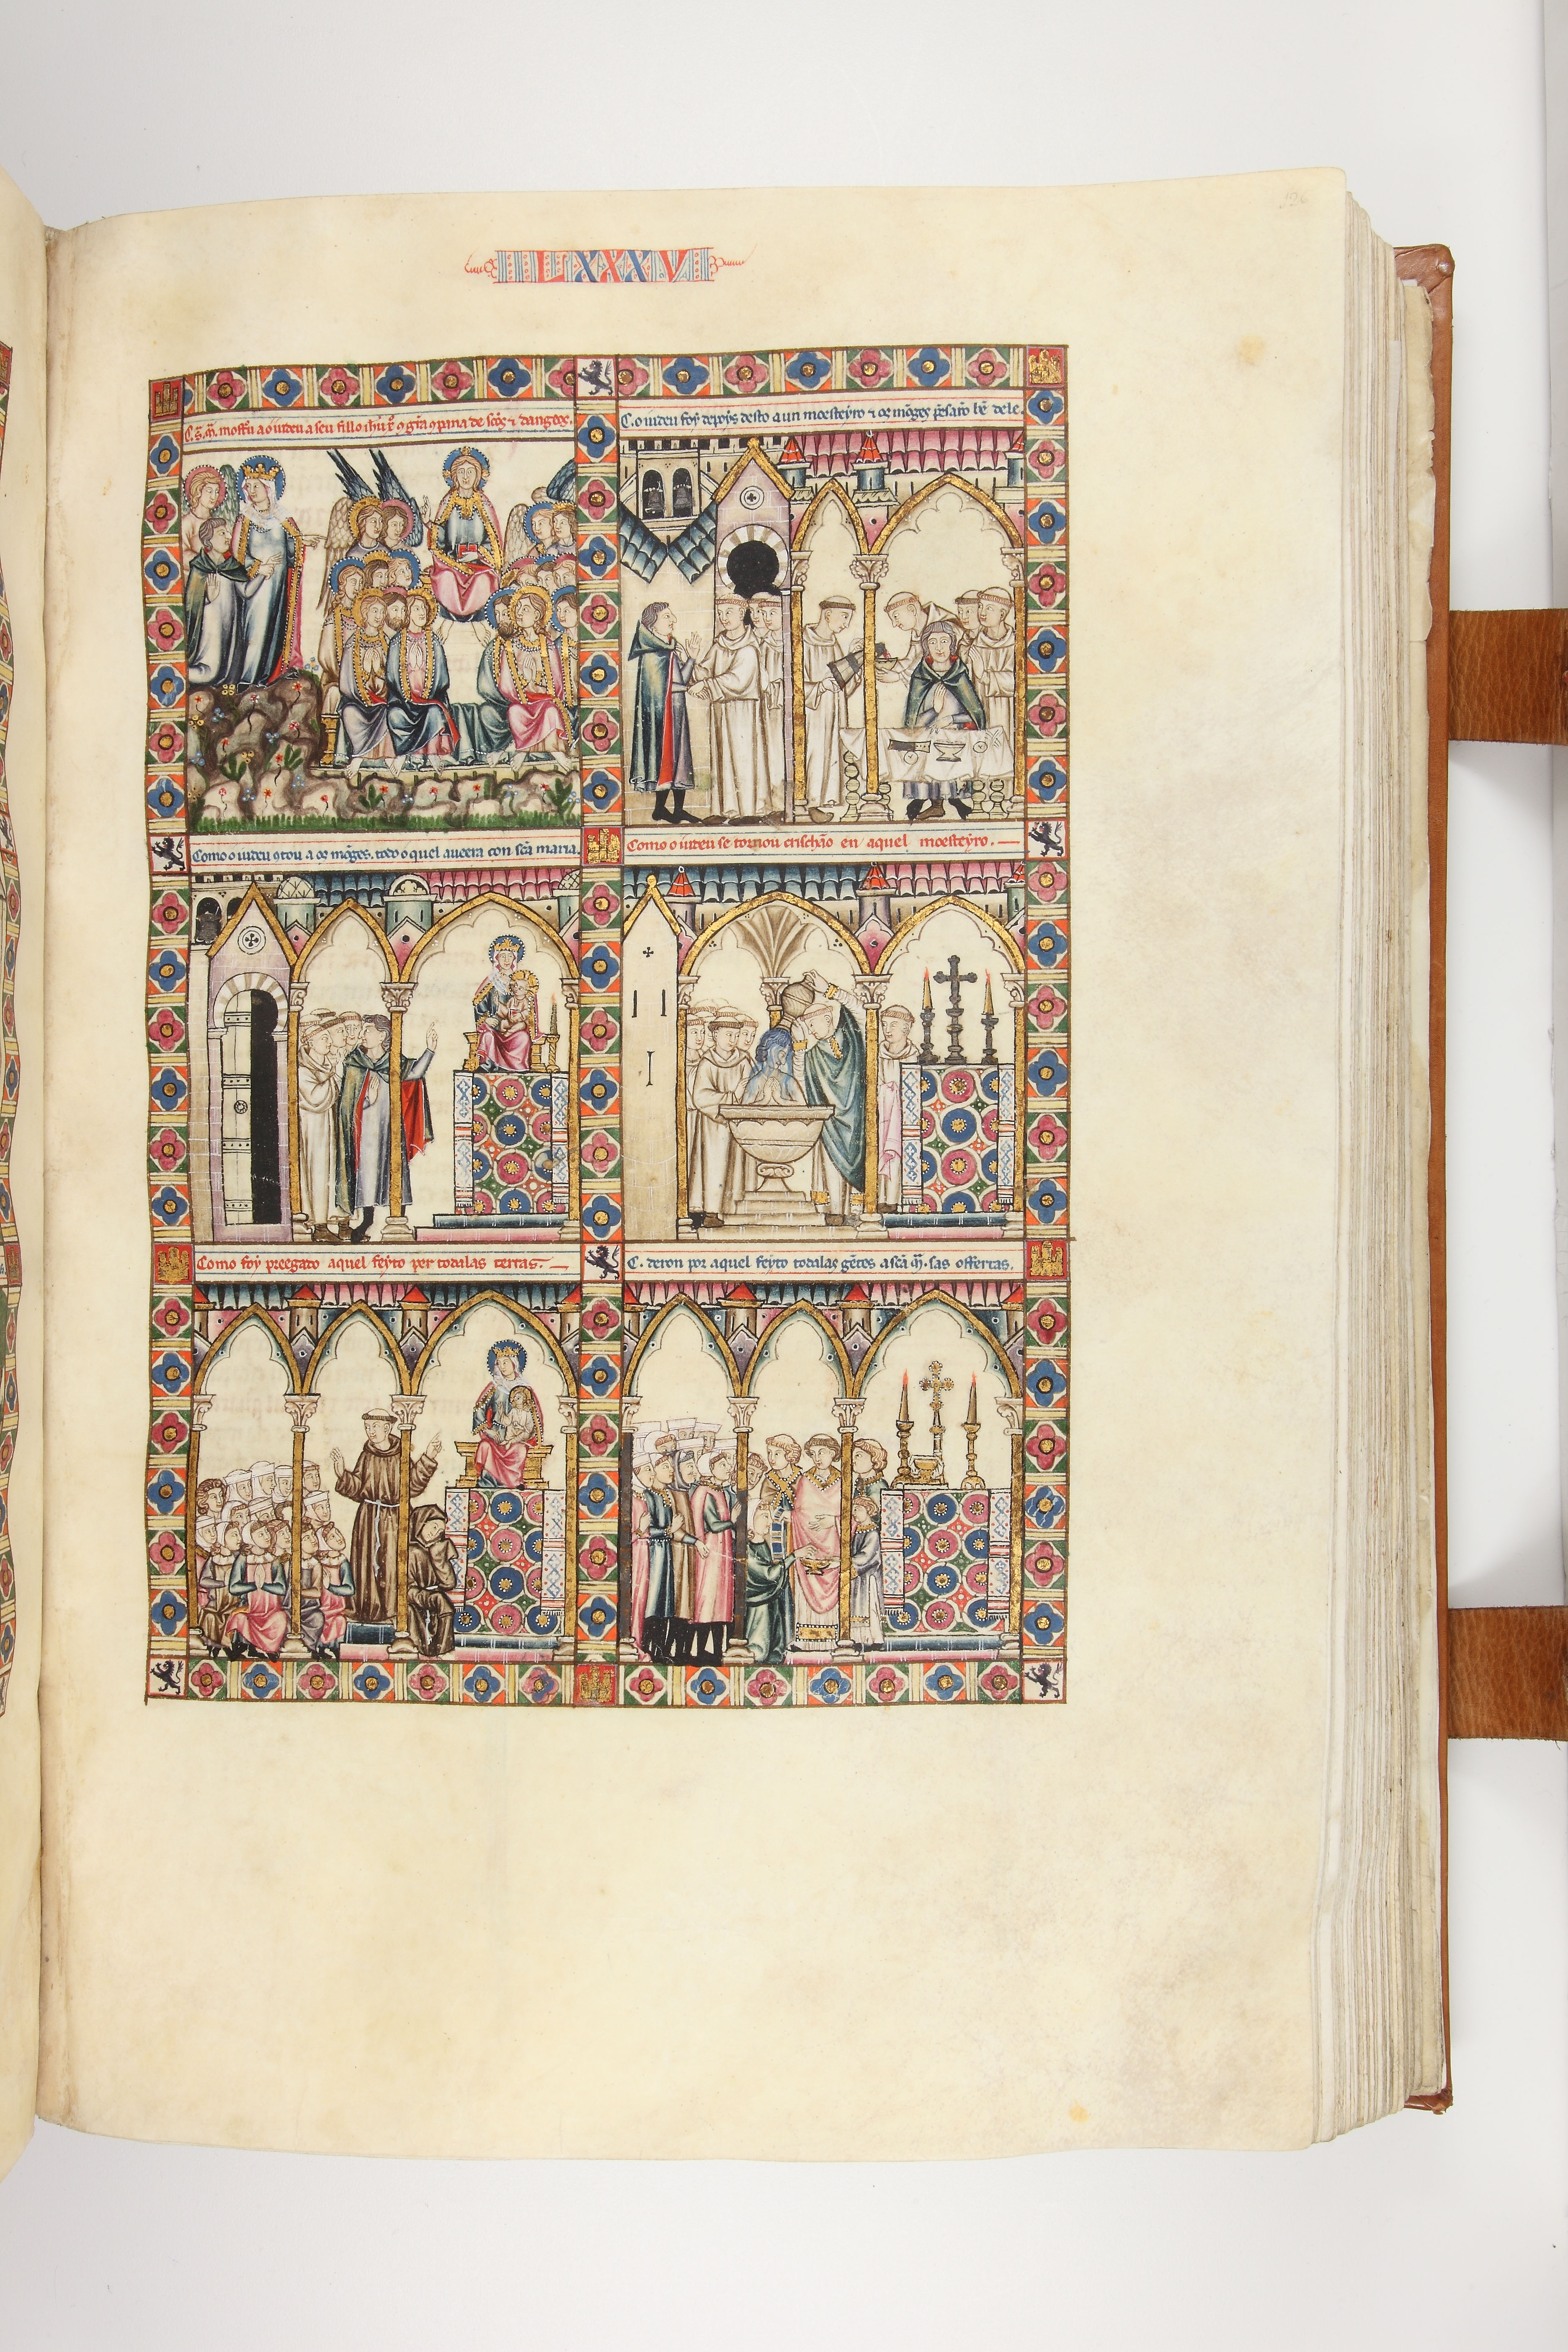 LXXXV
C. s. m. mostrou ao iudeu a seu fillo ihu x̄o con gran conpana de scos ⁊ dangeos.
C. o iudeu foy depoys desto a un moesteyro ⁊ os mōges pēsarō bē dele.
Como o iudeu ɔtou a os mōges. todo o quel aueera con scā maria.
Como o iudeu se tornou crischāo en aquel moesteyro.
Como foy preegado aquel feyto per todalas terras.
C. deron por aquel feyto todalas gētes a scā m̄. sas offertas.